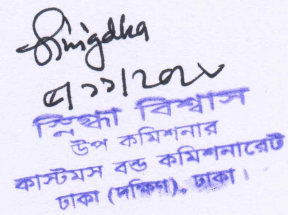 Snigdha
৫/১১/২০২০
স্নিগ্ধা বিশ্বাস
উপ কমিশনার
কাস্টমস বন্ড কমিশনারেট
ঢাকা (দক্ষিণ), ঢাকা।